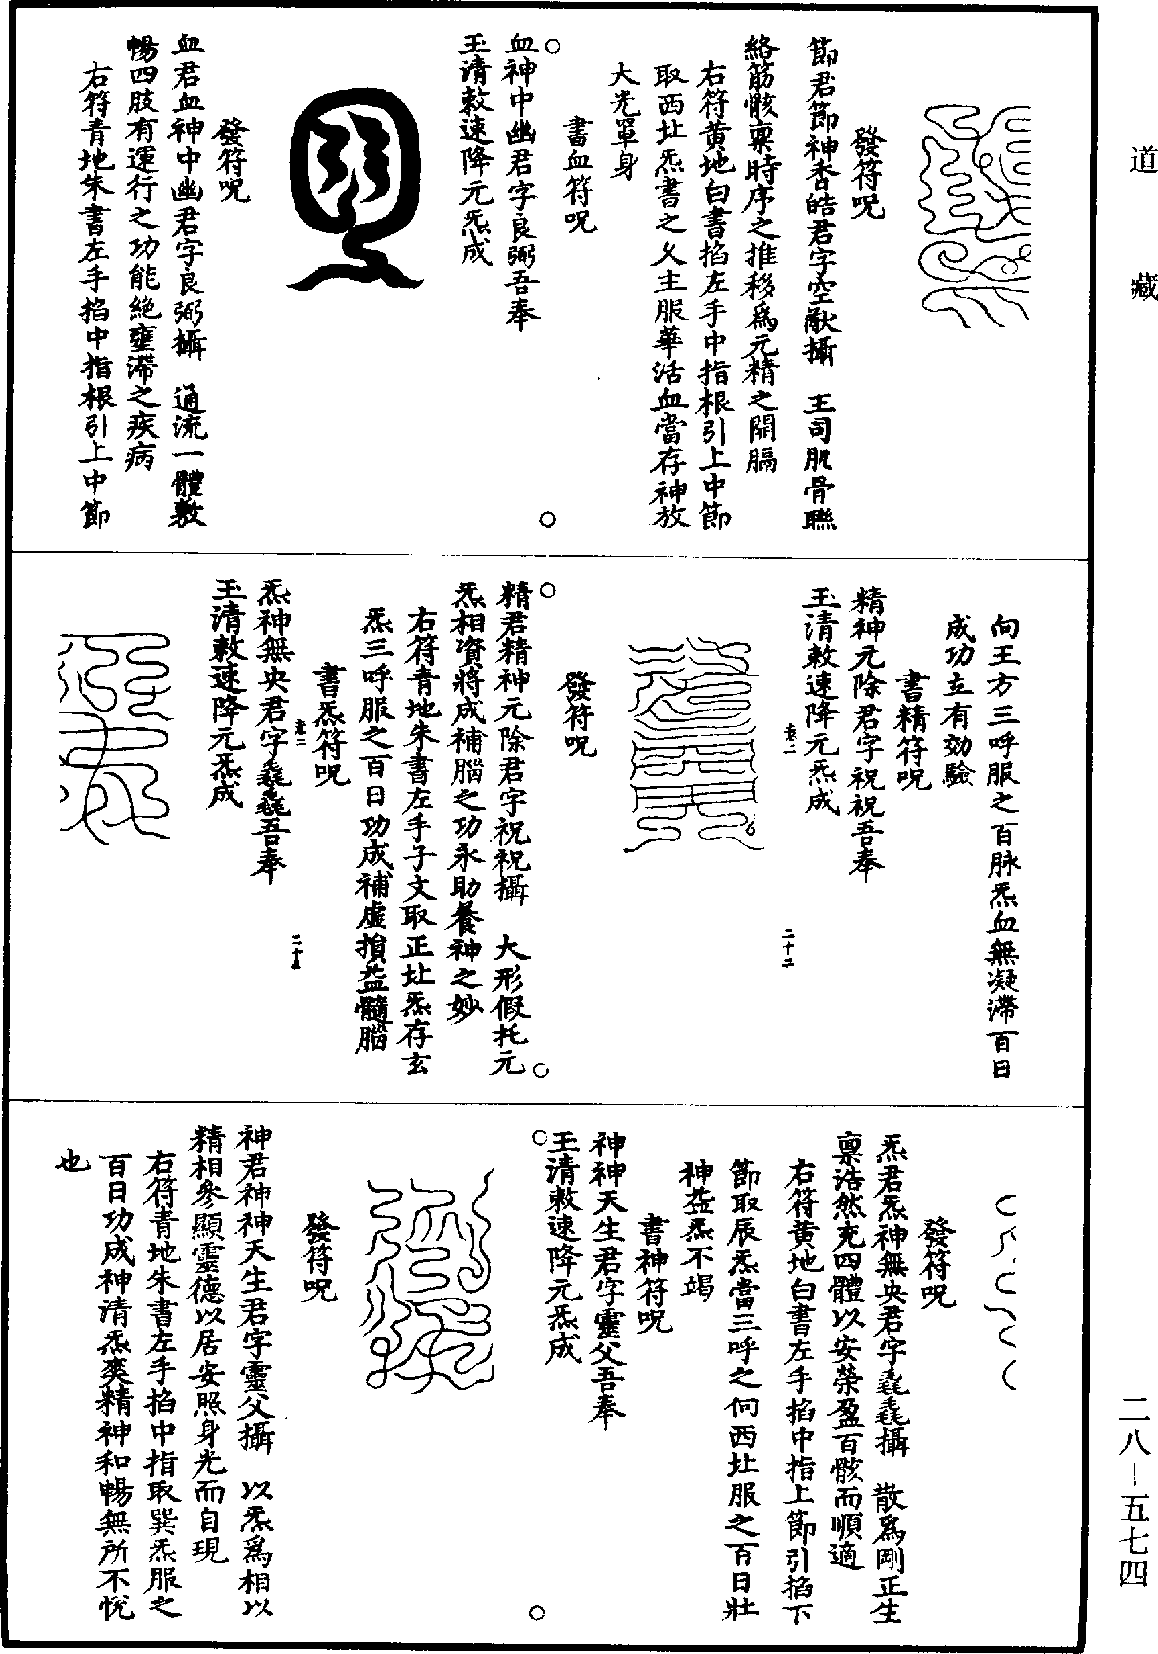 道藏
發符呪
節君節神杳皓君字空猷攝　王司肌骨聯
絡筋骸稟時序之推移為元精之關膈
右符黃地白書掐左手中指根引上中節
取西北炁書之乂主服華活血當存神放
大光罩身
書血符呪
血神中幽君字良弼吾奉
玉清敕速降元炁成
發符呪
血君血神中幽君字良弼攝　通流一體敷
暢四肢有運行之功能絕壅滯之疾病
右符青地朱書左手掐中指根引上中節
向王方三呼服之百脉炁血無凝滯百日
成功立有効驗
書精符呪
精神元除君字祝祝吾奉
玉清敕速降元炁成
二十二
發符呪
精君精神元除君字祝祝攝　大形假托元
炁相資將成補腦之功永助養神之妙
右符青地朱書左手子文取正北炁存玄
炁三呼服之百日功成補虛損益髓腦
書炁符呪
炁神無央君字毳毳吾奉
玉清敕速降元炁成
發符呪
炁君炁神無央君字毳毳攝　散為剛正生
稟浩然充四體以安榮盈百骸而順適
右符黃地白書左手掐中指上節引掐下
節取辰炁當三呼之向西北服之百日壯
神益炁不竭
書神符呪
神神天生君字靈父吾奉
玉清敕速降元炁成
發符呪
神君神神天生君字靈父攝　以炁為相以
精相參顯靈德以居安照身光而自現
右符青地朱書左手掐中指取巽炁服之
百日功成神清炁爽精神和暢無所不悅
也
二八—五七四